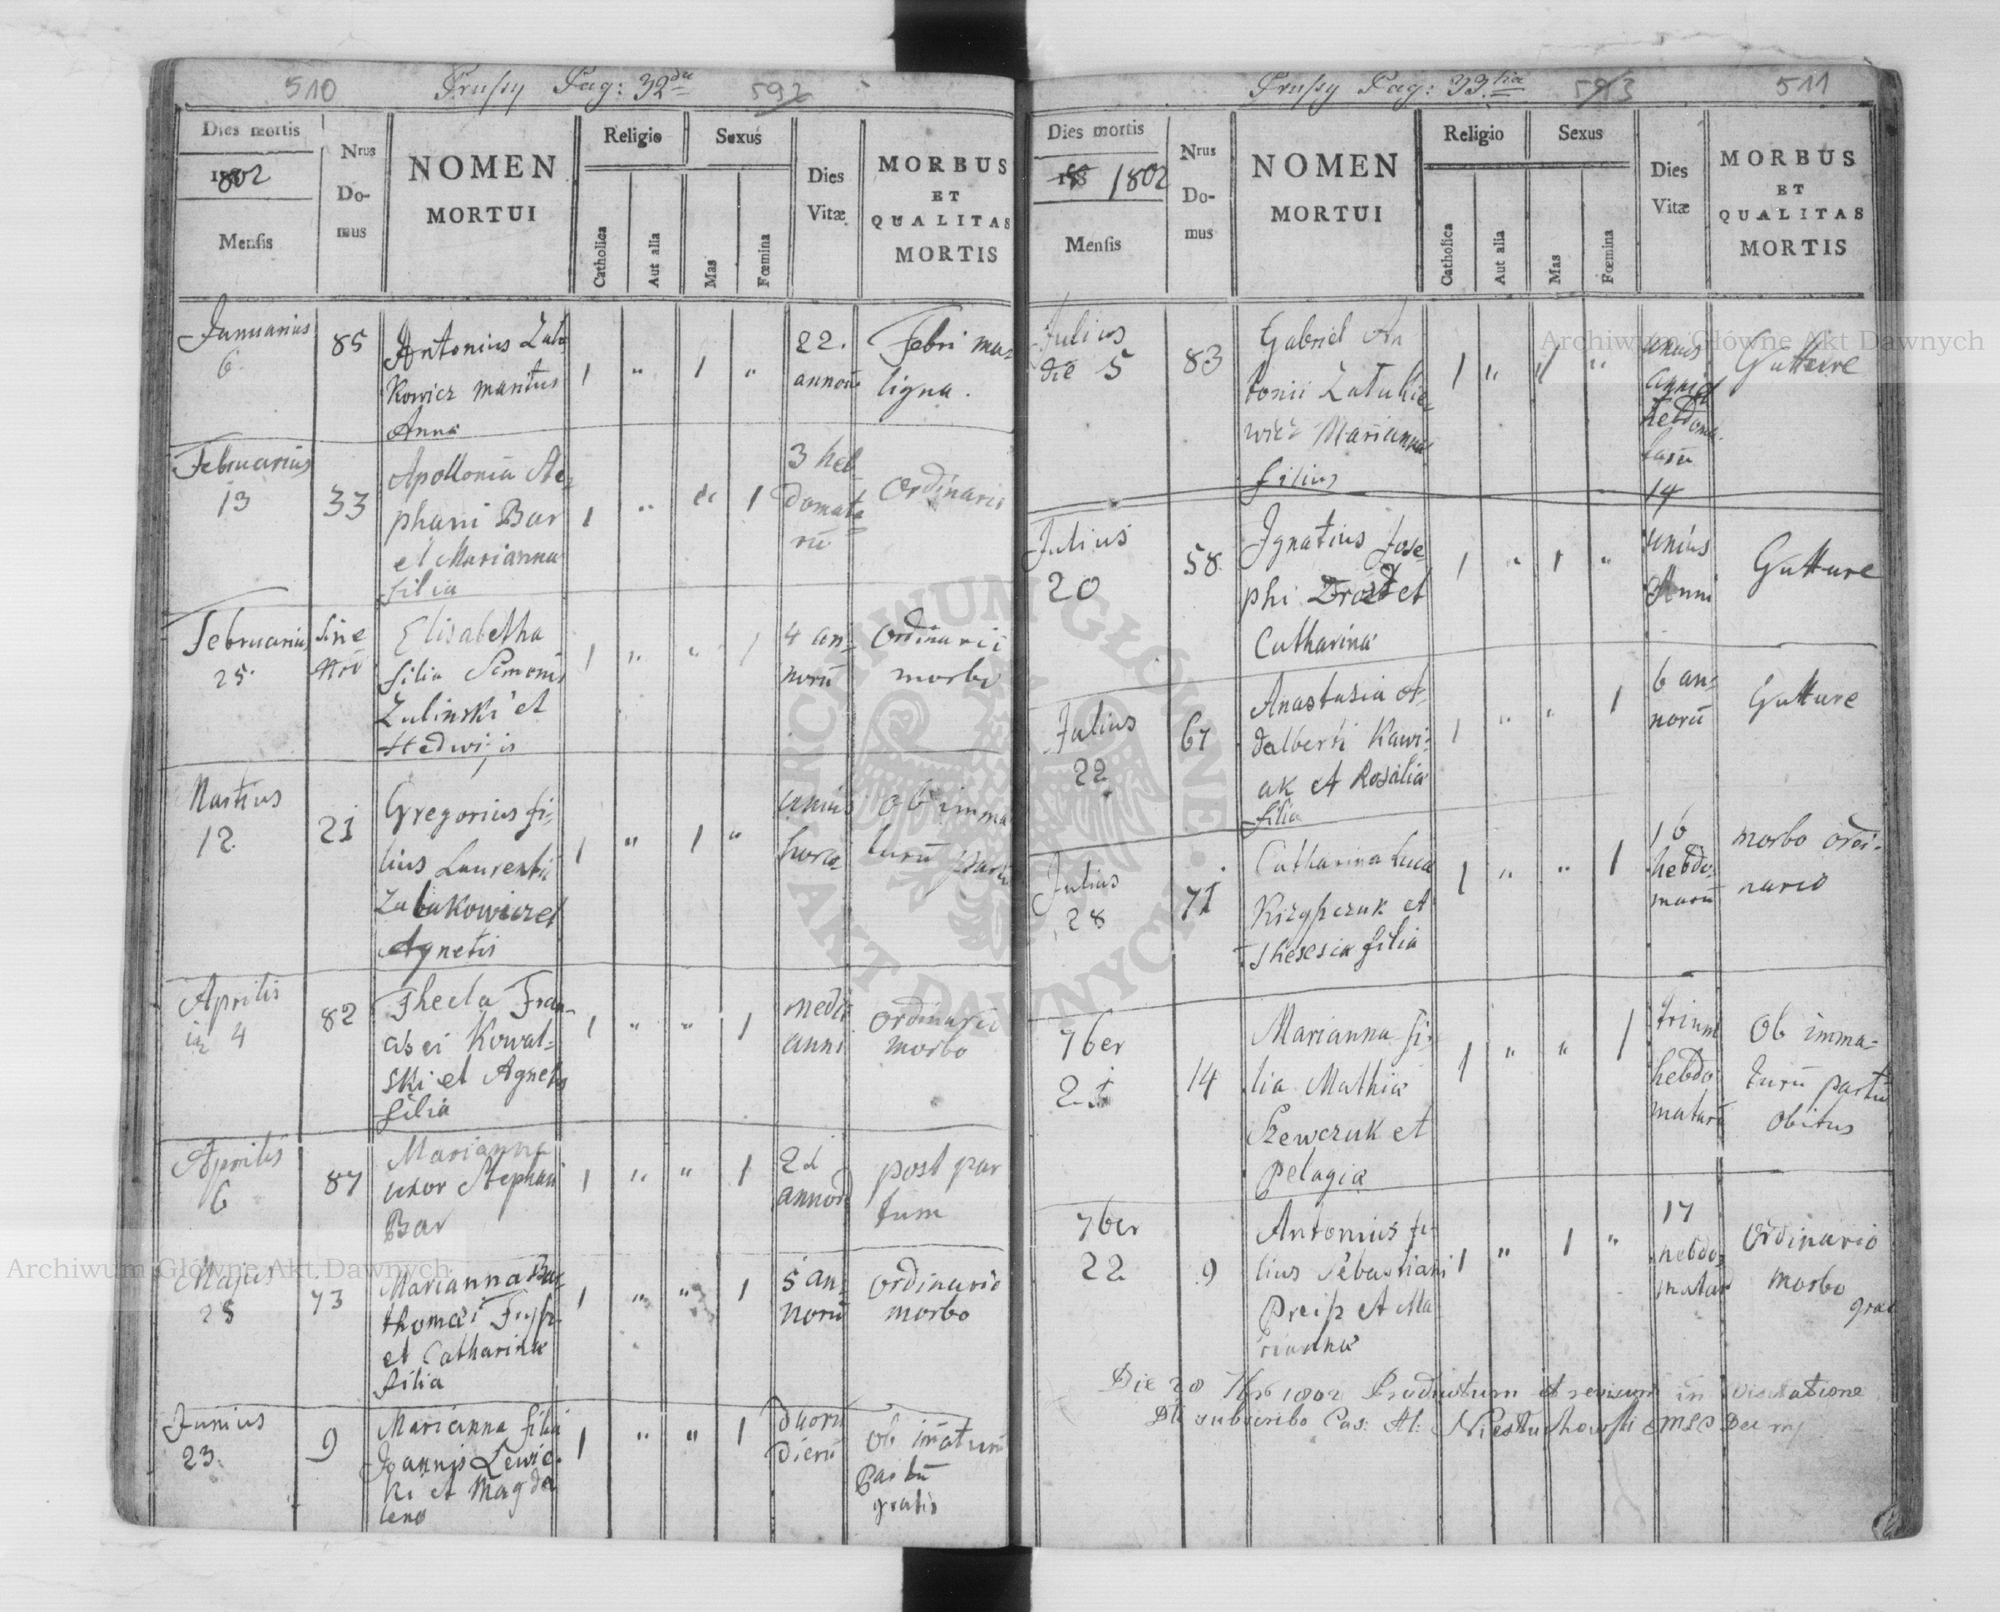 510
Prussy Pag: 32da
592
Dies mortis
1802
Mensis
Nrus
Do-
mus
NOMEN
MORTUI
Religio
Catholica
Aut alia
Sexus
Mas
Fœmina
Dies
Vitæ
MORBUS
ET
QUALITAS
MORTIS
Januarius
6
85
Antonius
kowicz maritus
Anna
1 " 1 "
22.
annorū
Febri ma-
ligna.
Februarius
13
33
Apollonia Ste-
phani Bar
et Marianna
filia
1 " " 1
3 heb
domata
rū
Ordinario
Februarius
25.
Sine
Nro
Elisabetha
filia Simonis
Zulinski et
Hedwigis
1 " " 1
4 an-
norū
Ordinario
morbo
Martius
12
21
Gregorius fi-
lius Laurentii
et
Agnetis
1 " 1 "
unius
hora
ob imma
turū partū
Aprilis
4
82
Thecla Fran-
cisci Kowal-
ski et Agnetis
filia
1 " " 1
medii
anni
ordinario
morbo
Aprilis
6
87
Marianna
uxor Stephani
Bar
1 " " 1
21
annorū
post par
tum
Majus
25
73
Marianna Bar-
thomæi
et Catharinæ
filia
1 " " 1
5 an-
norū
ordinario
morbo
Junius
23.
9
Marianna filia
Joannis Lewic-
ki et Magda
lena
1 " " 1
duorū
dierū
ob imaturū
Partū
gratis
Prussy Pag: 33.tia
593
511
Dies mortis
1802
Mensis
Nrus
Do-
mus
NOMEN
MORTUI
Religio
Catholica
Aut alia
Sexus
Mas
Fœmina
Dies
Vitæ
MORBUS
ET
QUALITAS
MORTIS
Julius
die 5
83
Gabriel An
tonii Zatukie-
wicz Marianna
filius
1 " 1 "
unius
anni et
hebdoma-
tarū
14
Gutture
Julius
20
58.
Ignatius Jose
phi Drozd et
Catharinæ
1 " 1 "
unius
Anni
Gutture
Julius
22
67
Anastasia A-
dalberti Kawi-
ak et Rosaliæ
filia
1 " " 1
6 an-
norū
Gutture
Julius
28
71
Catharina Lucæ
et
Theresia filia
1 " " 1
16
hebdo-
marū
morbo ordi-
nario
7ber
21
14
Marianna fi-
lia Mathiæ
Szewczuk et
Pelagiæ
1 " " 1
trium
hebdo
matarū
Ob imma-
turū partū
obitus
7ber
22
9
Antonius fi-
lius Sebastiani
Preiss et Ma
riannæ
1 " 1 "
17
hebdo-
matar
Ordinario
morbo
grat
Die 28 7bris 1802 Productum et revisum in visitatione
subscribo Cas: Niestuchowski
Archiwum Główne Akt Dawnych
Archiwum Główne Akt Dawnych
ARCHIWUM GŁÓWNE AKT DAWNYCH